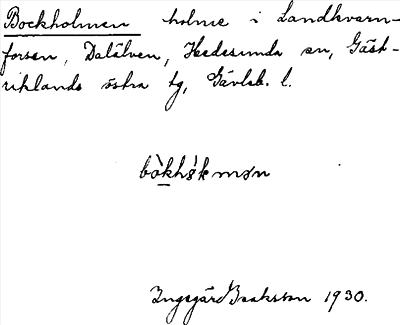 Bockholmen holme i Landkvarn-
forsen, Dalälven, Hedesunda sn, Gäst-
riklands östra tg, Gävleb. l.
Ingegärd Isaksson 1930.